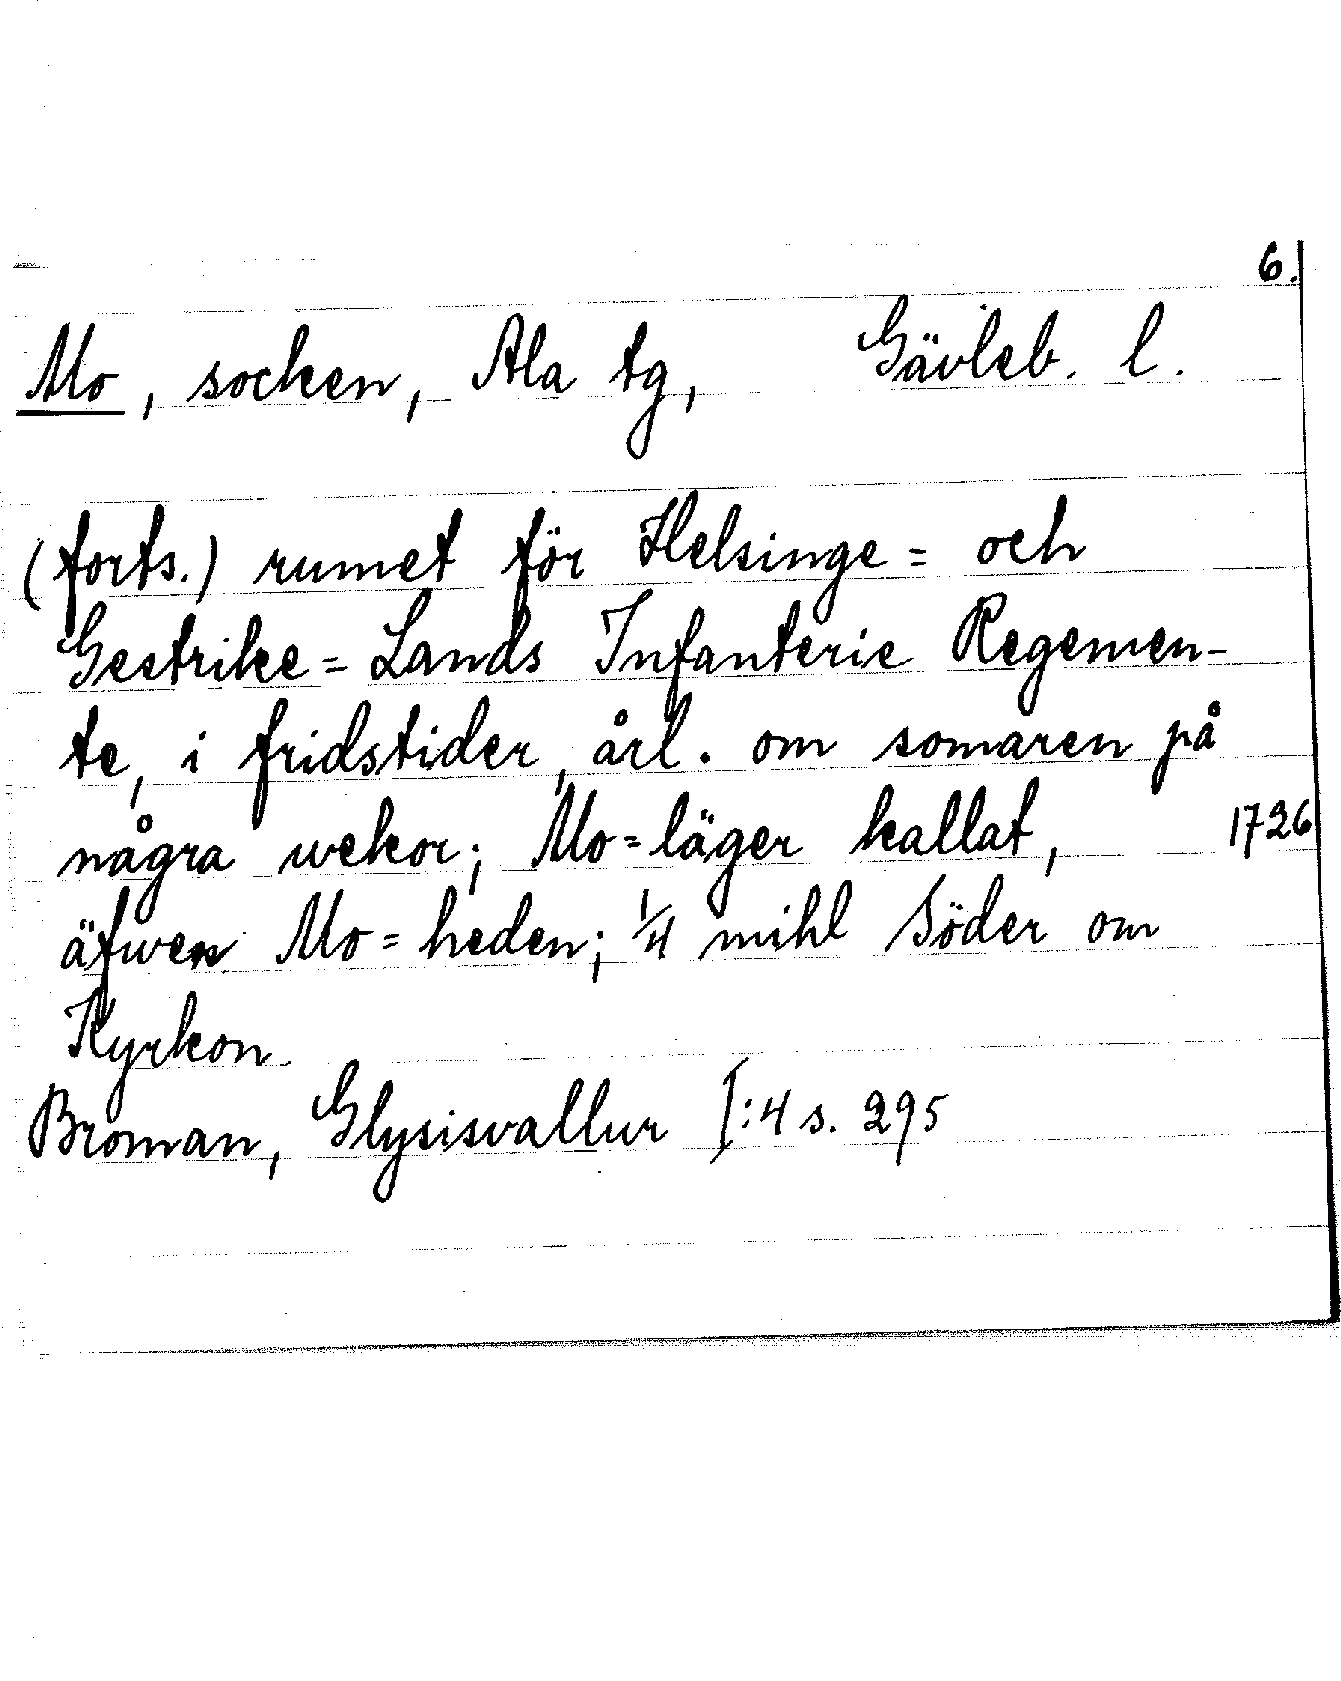 6.
Mo, socken, Ala tg, Gävleb. l.
(forts.) rumet för Helsinge= och
Gestrike=Lands Infanterie Regemen-
te, i fridstider, årl. om somaren på
några wekor; Mo=läger kallat, 1726
äfwen Mo=heden; 1/4 mihl Söder om
Kyrkon.
Broman, Glysisvallur I:4 s. 295